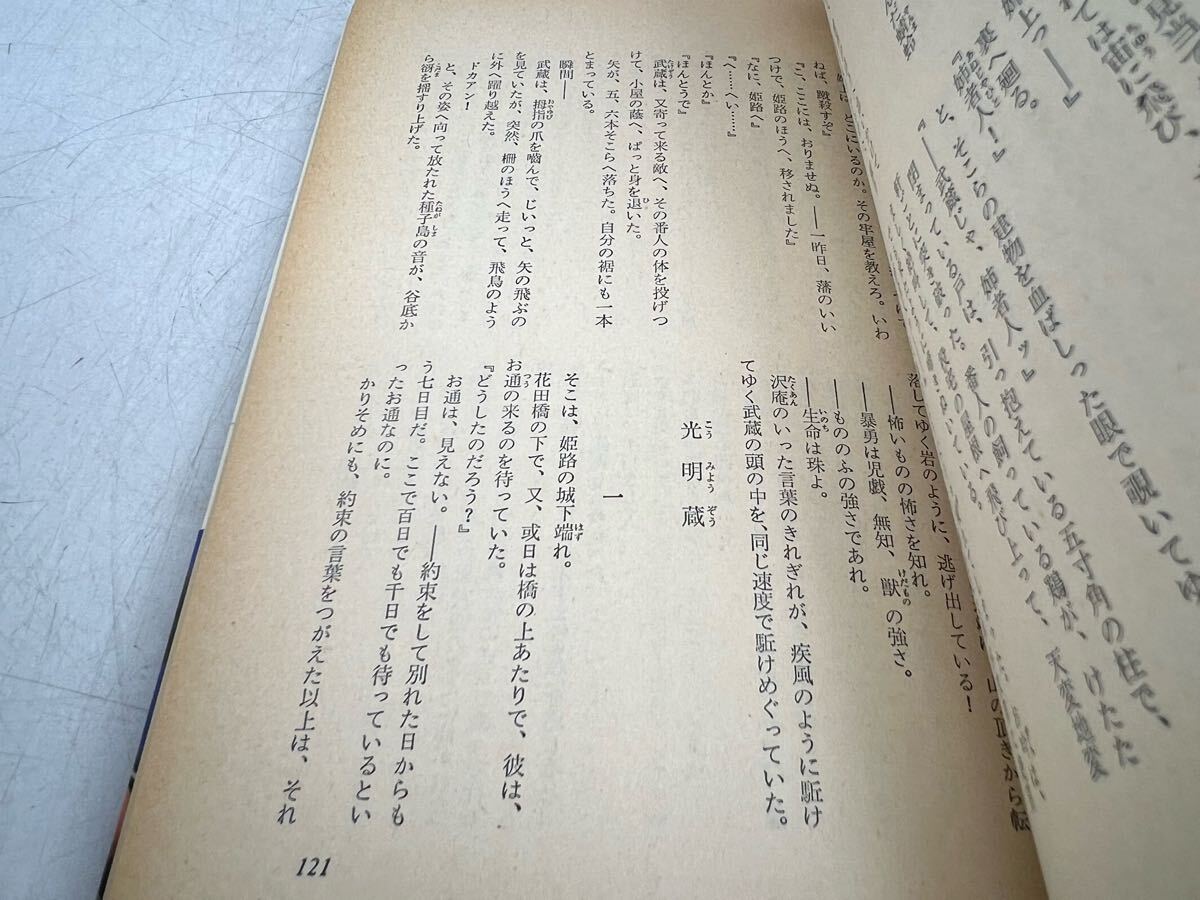 見当て
ては宙に飛び、
姉上っ――』
裏へ廻る。
『姉者人！』
と、そこらの建物を血ばしった眼で覗いてゆ
『――武蔵じゃ、姉者人ッ』
閉まっている戸は、引っ抱えている五寸角の柱で、
番人の飼っている鶏が、けたた
屋根へ飛び上って、天変地変
どこにいるのか。その牢屋を教えろ。いわ
ねば、蹴殺すぞ』
『こ、ここには、おりませぬ。――一昨日、藩のいい
つけで、姫路のほうへ、移されました』
『なに、姫路へ』
『へ……へい……』
『ほんとか』
『ほんとうで』
武蔵は、又寄って来る敵へ、その番人の体を投げつ
けて、小屋の蔭へ、ぱっと身を退いた。
矢が、五、六本そこらへ落ちた。自分の裾にも一本
とまっている。
瞬間――
武蔵は、拇指の爪を嚙んで、じいっと、矢の飛ぶの
を見ていたが、突然、柵のほうへ走って、飛鳥のよう
に外へ躍り越えた。
ドカアン！
と、その姿へ向って放たれた種子島の音が、谷底か
ら谺を揺すり上げた。
山の頂きから転
落してゆく岩のように、逃げ出している！
――怖いものの怖さを知れ。
――暴勇は児戯、無知、獣の強さ。
――もののふの強さであれ。
――生命は珠よ。
沢庵のいった言葉のきれぎれが、疾風のように駈け
てゆく武蔵の頭の中を、同じ速度で駈けめぐっていた。
光明蔵
一
そこは、姫路の城下端れ。
花田橋の下で、又、或日は橋の上あたりで、彼は、
お通の来るのを待っていた。
『どうしたのだろう？』
お通は、見えない。――約束をして別れた日からも
う七日目だ。ここで百日でも千日でも待っているとい
ったお通なのに。
かりそめにも、約束の言葉をつがえた以上は、それ
121